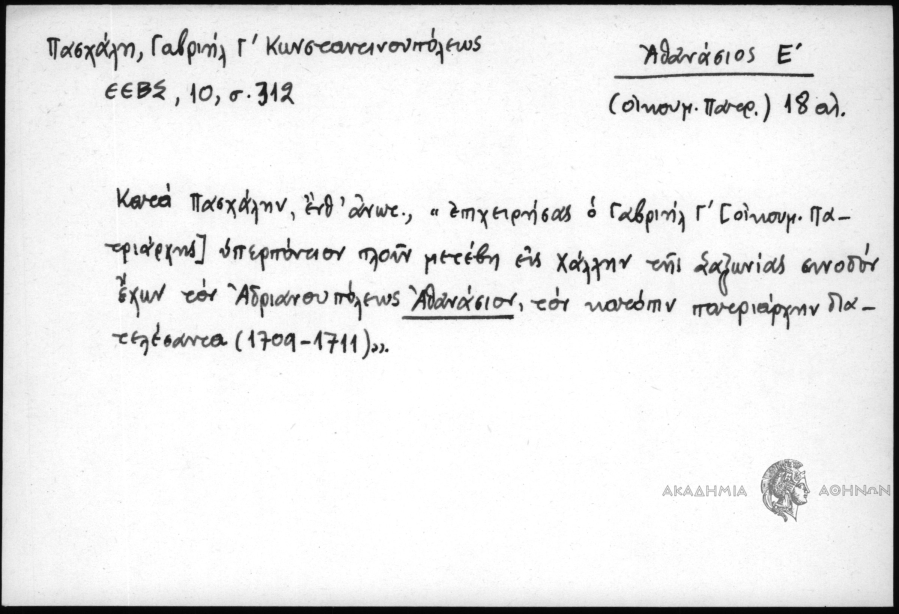 Πασχάλη, Γαβριήλ Γ' Κωνσταντινουπόλεως
ΕΕΒΣ, 10, σ. 312
Ἀθανάσιος Ε'
(οἰκουμ. Πατρ.) 18 αἰ.
Κατά Πασχάλην, ἔνθ' ἄνωτ., «ἐπιχειρήσας ὁ Γαβριήλ Γ' [οἰκουμ. Πα-
τριάρχης] ὑπερπόντιον πλοῦν μετέβη εἰς Χάλλην τῆς Σαξωνίας συνοδόν
ἔχων τόν Ἀδριανουπόλεως Ἀθανάσιον, τόν κατόπιν πατριάρχην δια-
τελέσαντα (1709-1711)».
ΑΚΑΔΗΜΙΑ ΑΘΗΝΩΝ